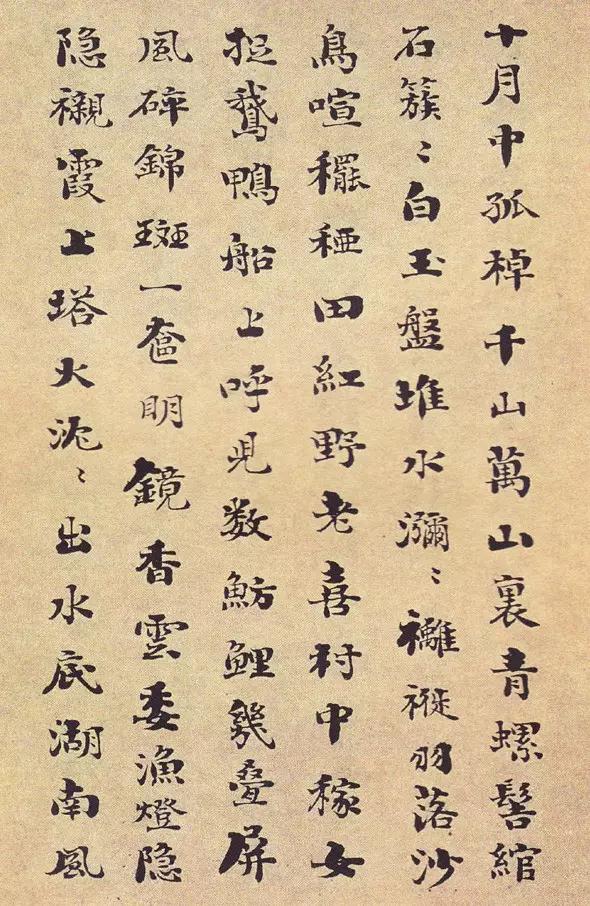 十月中孤棹千山萬山裏青螺髻綰
石簇〻白玉盤堆水瀰〻襹褷羽落沙
鳥喧䆉稏田紅野老喜村中稼女
捉鵝鴨船上呼児数魴鯉幾疊屏
風碎錦斑一奩明鏡香雲委漁燈隐
隐襯霞上塔火沉〻出水底湖南風